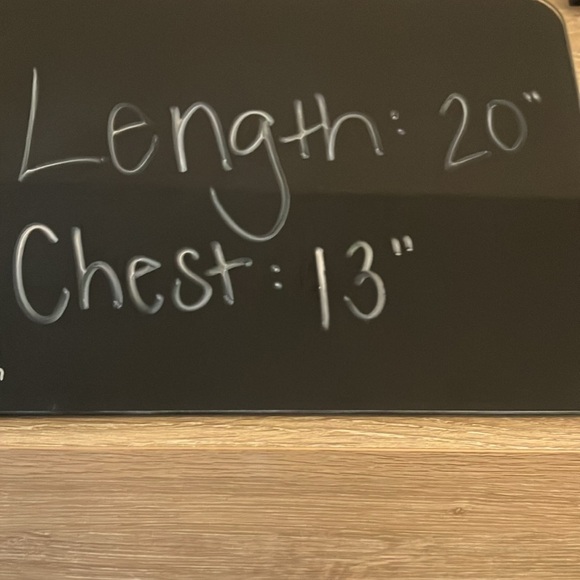 Length: 20"
Chest: 13"